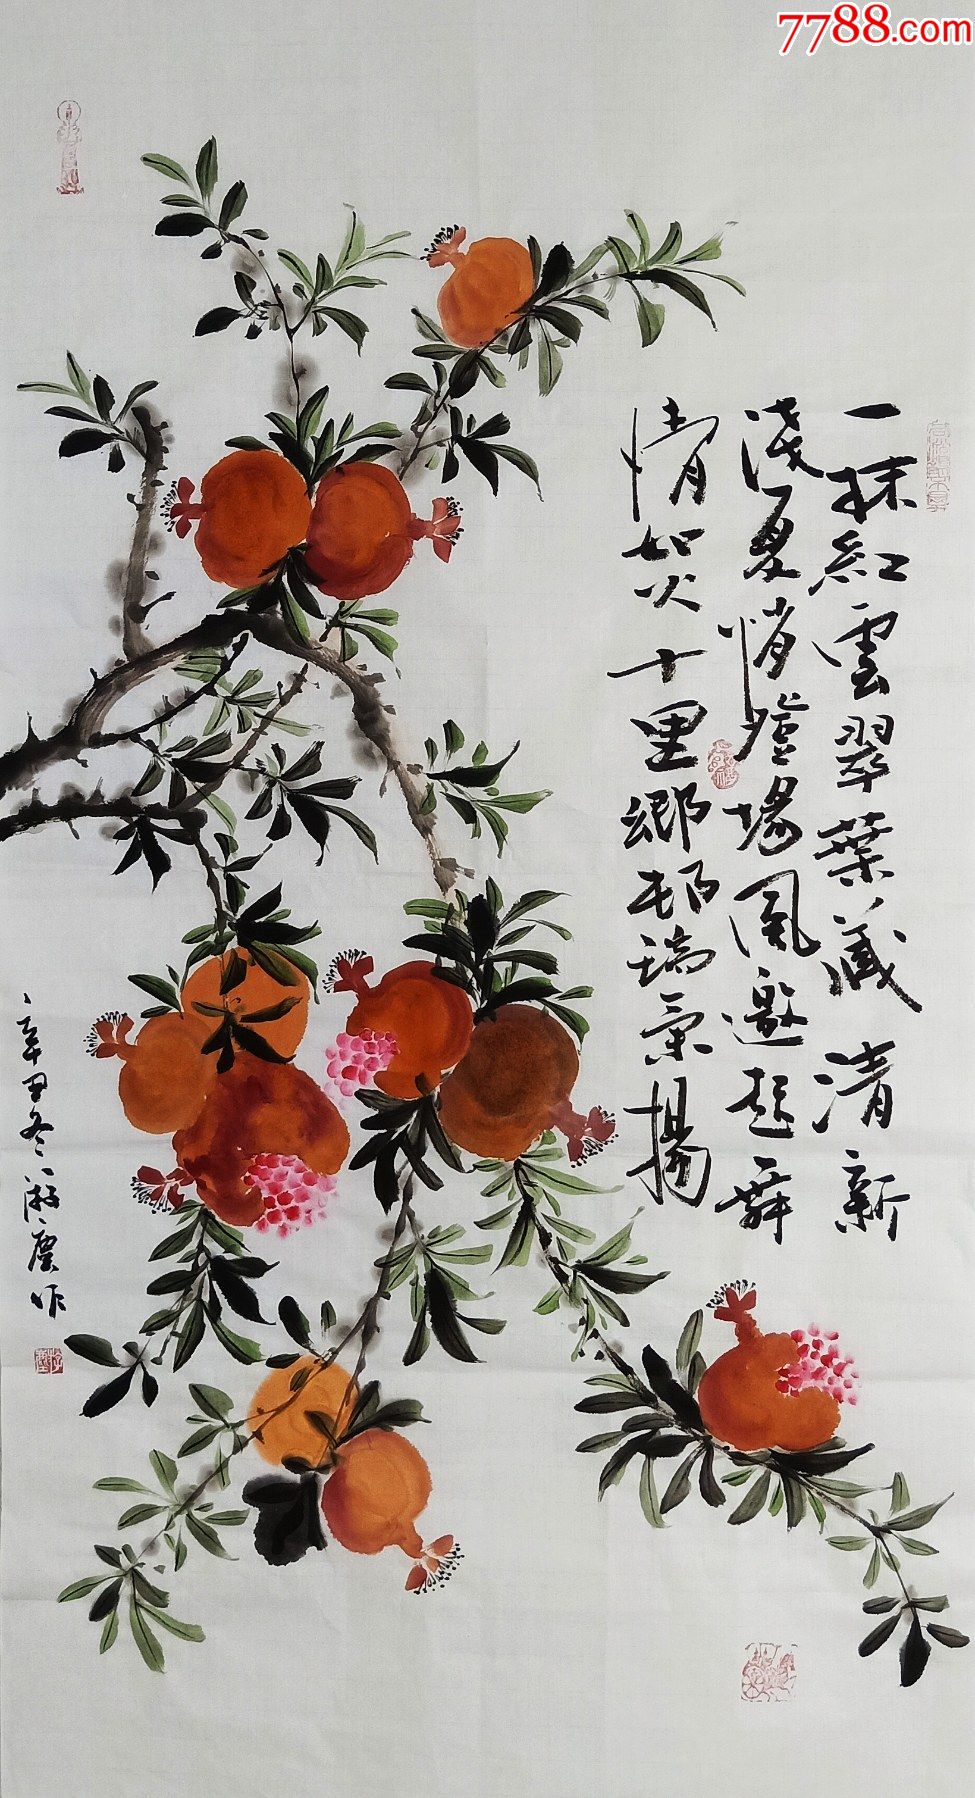 7788.com
一抹紅雲翠葉藏清新
淺夏悄登場風邀起舞
情如火十里鄉邨瑞氣揚
辛丑冬作